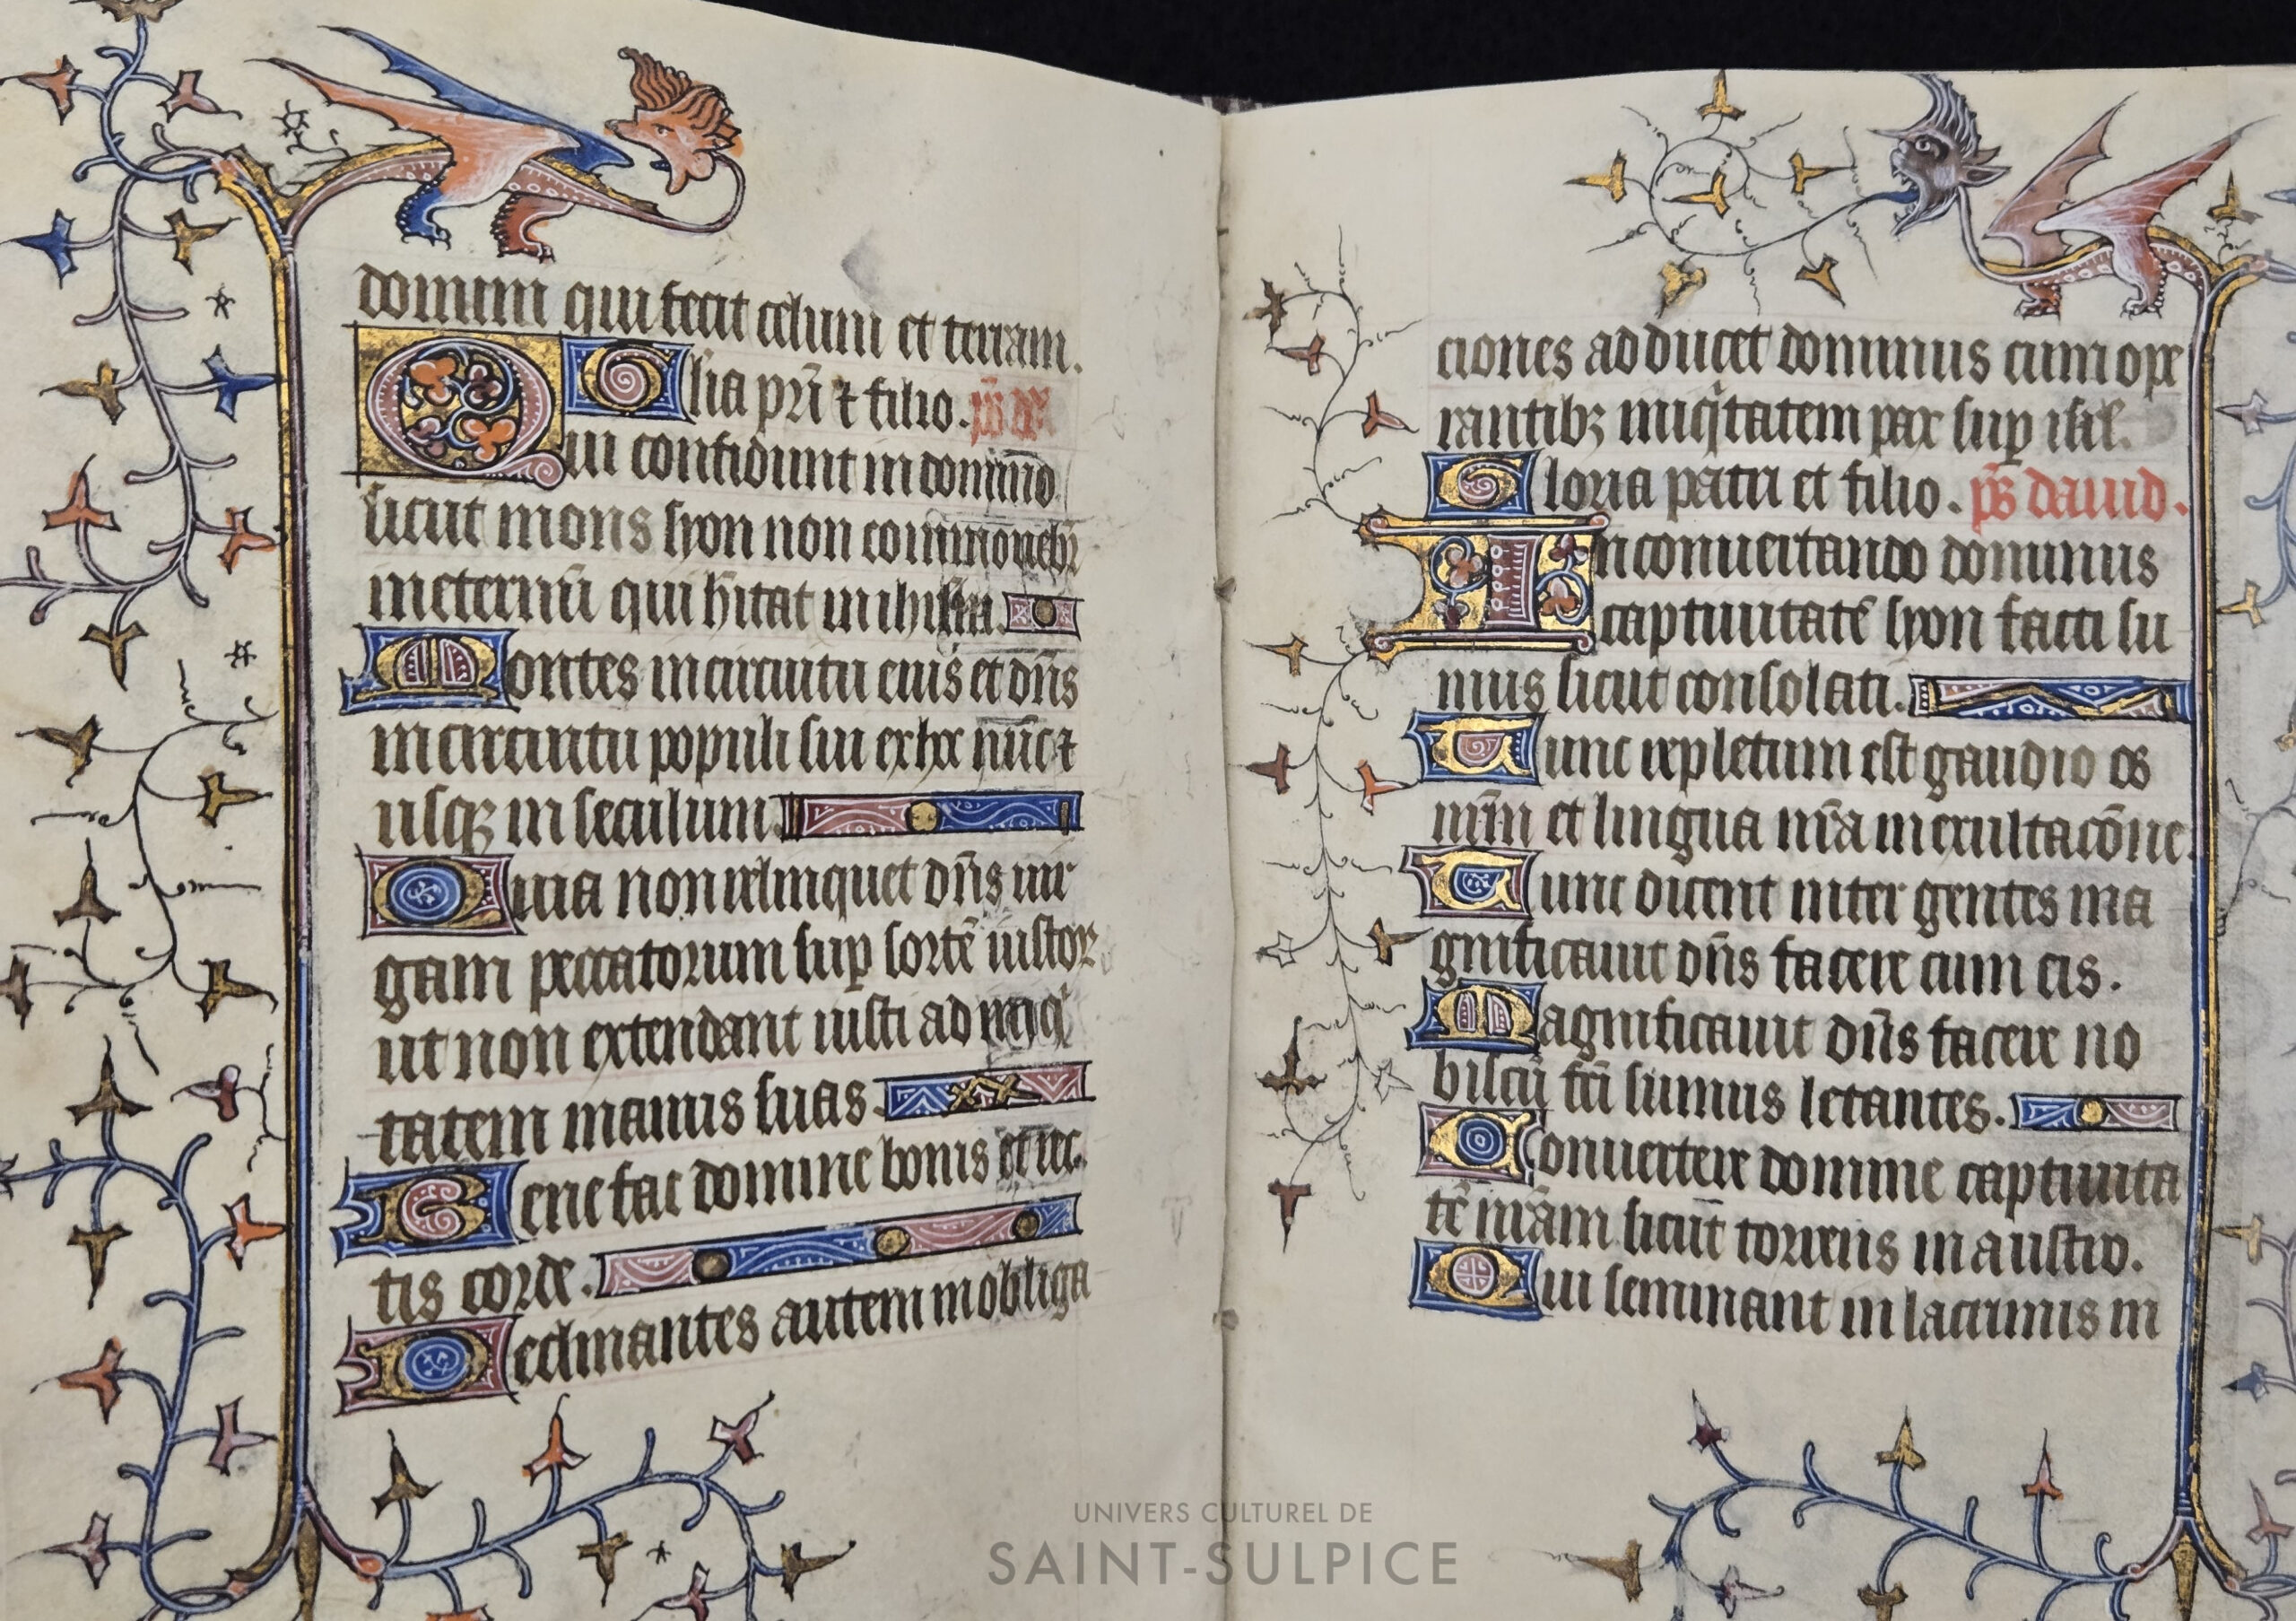 dominum qui fecit celum et terram.
Glia pr̄i ⁊ filio. ps̄ dd̄
Qui confidunt in domino
sicut mons syon non commouebr̄
in eternū qui h̄itat in ihrlm̄.
Montes in circuitu eius et dn̄s
in circuitu populi sui ex hoc nūc ⁊
usqꝫ in seculum.
Quia non relinquet dn̄s uir
gam peccatorum suꝑ sortē iustoꝝ
ut non extendant iusti ad iniqͥ
tatem manus suas.
Benefac domine bonis et rec
tis corde.
Declinantes autem in obliga
ciones adducet dominus cum ope
rantibꝫ iniqͥtatem pax suꝑ isrl.
Gloria patri et filio. ps̄ dauid.
In conuertando dominus
captiuitatē syon facti su
mus sicut consolati.
Tunc repletum est gaudio os
nr̄m et lingua nr̄a in exultacōne.
Tunc dicent inter gentes ma
gnificauit dn̄s facere cum eis.
Magnificauit dn̄s facere no
biscū fc̄i sumus letantes.
Conuertere domine captiuita
tē nr̄am sicut torrens in austro.
Qui seminant in lacrimis in
UNIVERS CULTUREL DE
SAINT-SULPICE